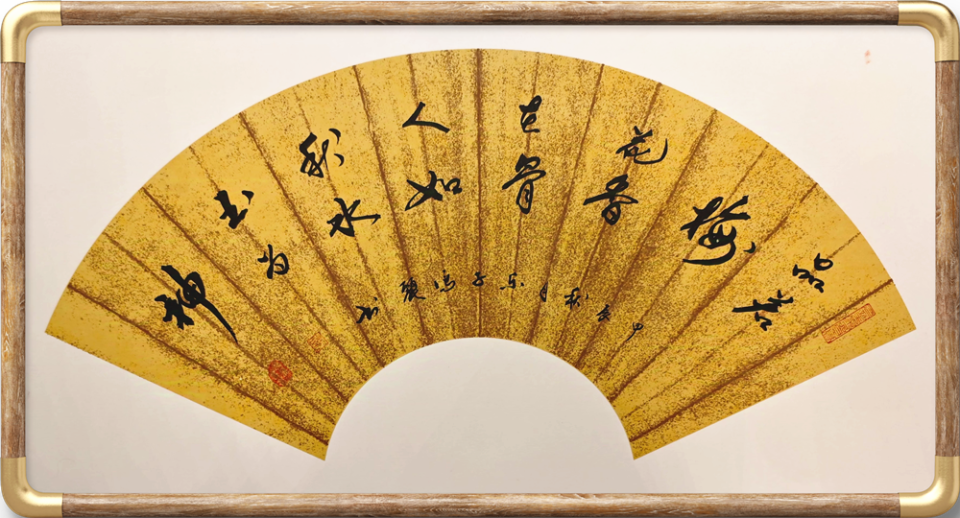 品若
梅
花香
在骨
人如
秋水
玉为
神
甲辰秋月
书